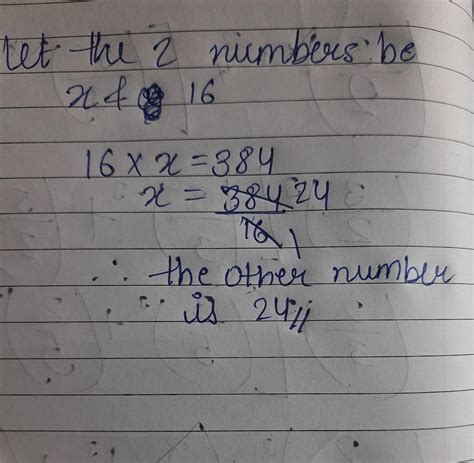 Let the 2 numbers be
x & 16
16 × x = 384
x = 384 24
16 1
∴ the other number
is 24//